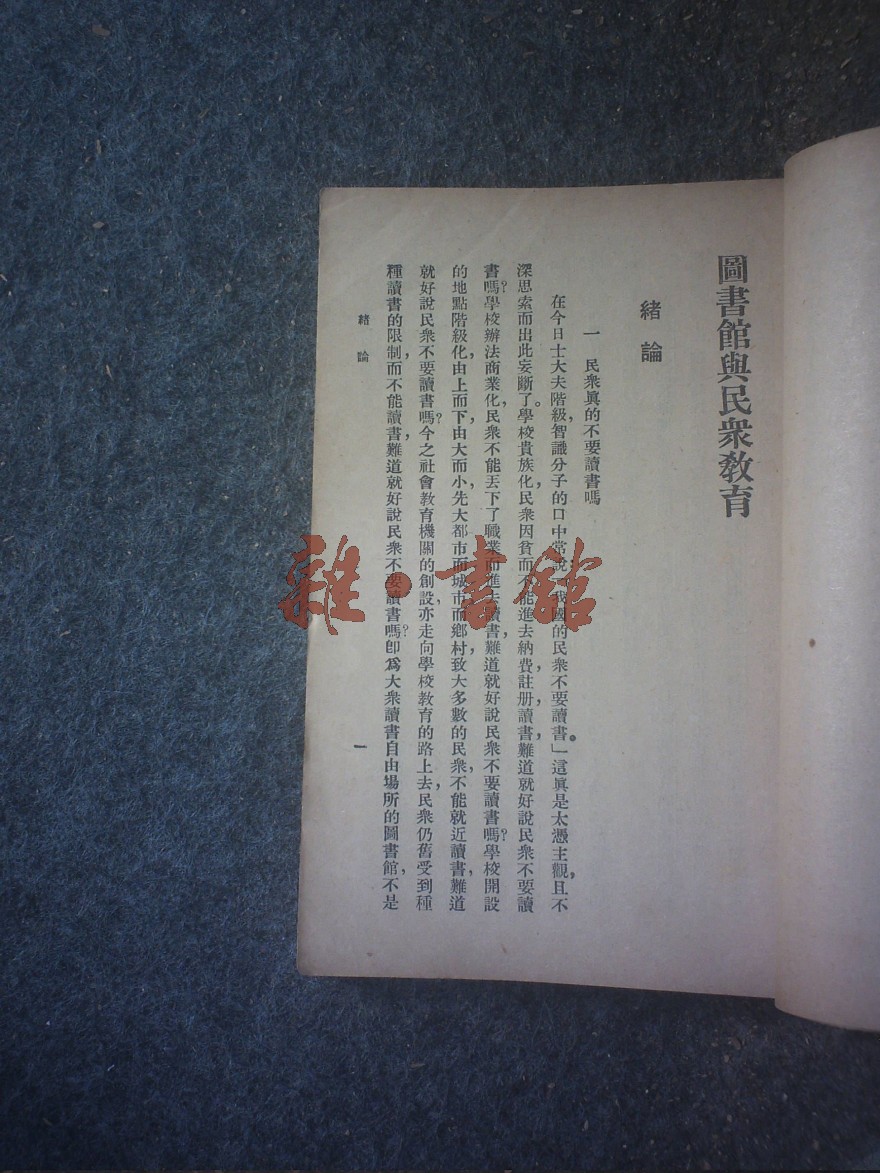 圖書館與民衆教育
緒論
一　民衆眞的不要讀書嗎
在今日士大夫階級，智識分子的口中常說：「我國的民衆不要讀書。」這眞是太憑主觀，且不
深思索而出此妄斷了。學校貴族化，民衆因貧而不能進去納費註册，讀書，難道就好說民衆不要讀
書嗎？學校辦法商業化，民衆不能丟下了職業而進去讀書，難道就好說民衆不要讀書嗎？學校開設
的地點階級化，由上而下，由大而小，先大都市而城市而鄉村，致大多數的民衆，不能就近讀書，難道
就好說民衆不要讀書嗎？今之社會教育機關的創設，亦走向學校教育的路上去，民衆仍舊受到種
種讀書的限制，而不能讀書，難道就好說民衆不要讀書嗎？卽爲大衆讀書自由場所的圖書館，不是
緒論
一
雜·書館